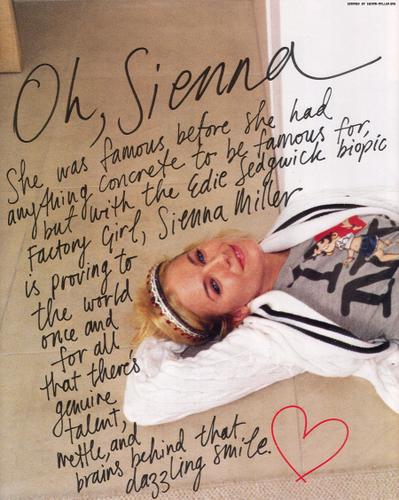 SCANNED BY SIENNA-MILLER.ORG
Oh, Sienna
She was famous before she had
anything concrete to be famous for,
but with the Edie Sedgwick biopic
Factory Girl, Sienna Miller
is proving to
the world
once and
for all
that there's
genuine
talent,
mettle, and
brains behind that
dazzling smile.
I
NY